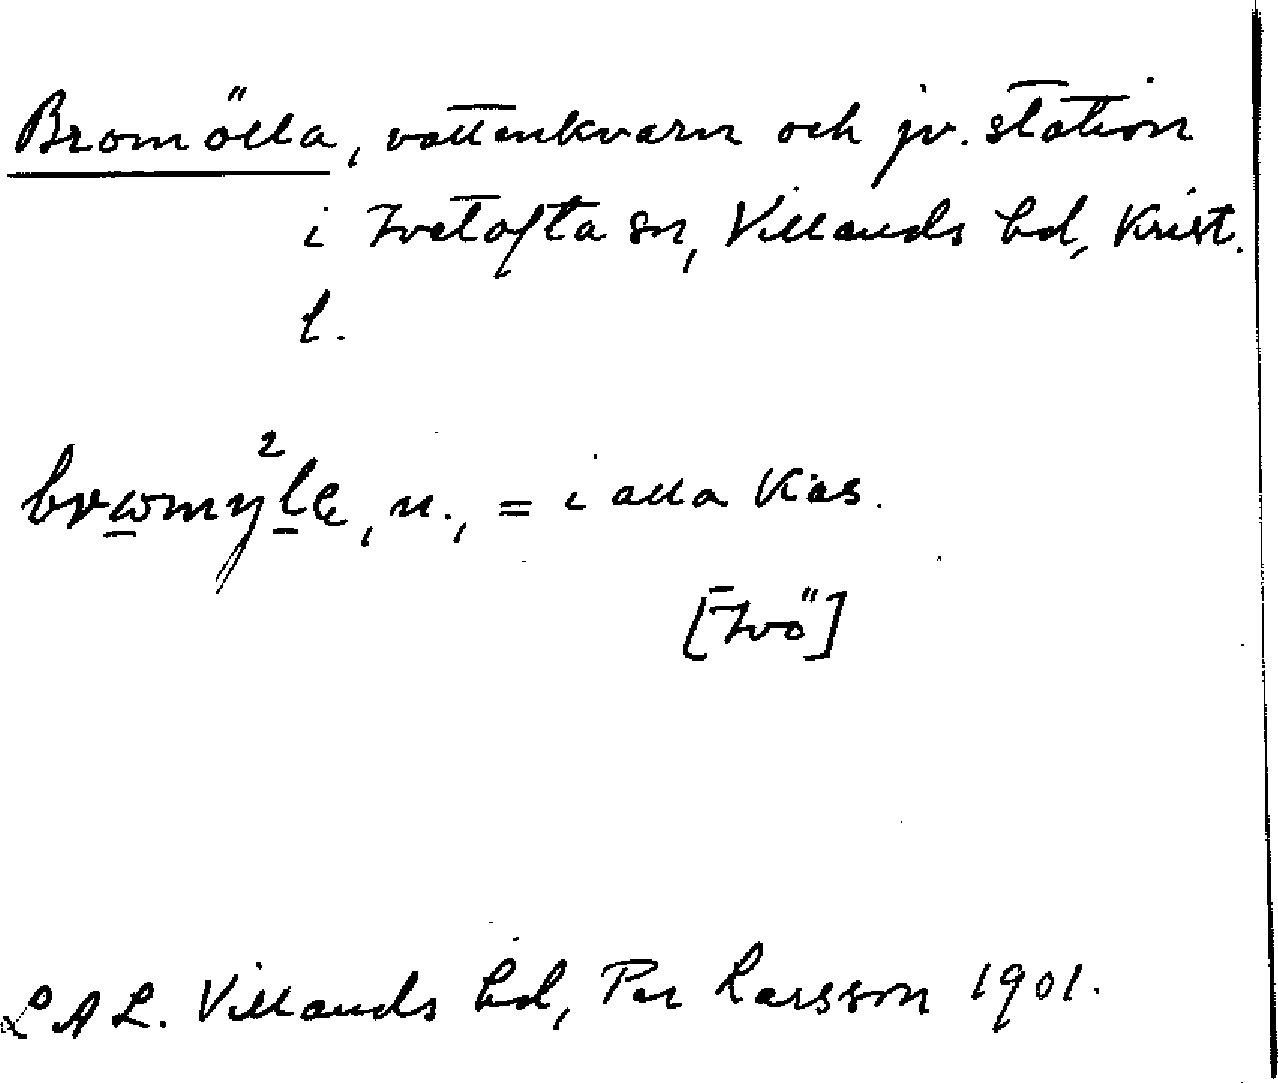 Bromölla, vattenkvarn och jv. station
i Ivetofta sn, Villands hd, Krist.
l.
brωmy²lę, n., = i alla kas.
[Ivö]
LAL. Villands hd, Per Larsson 1901.